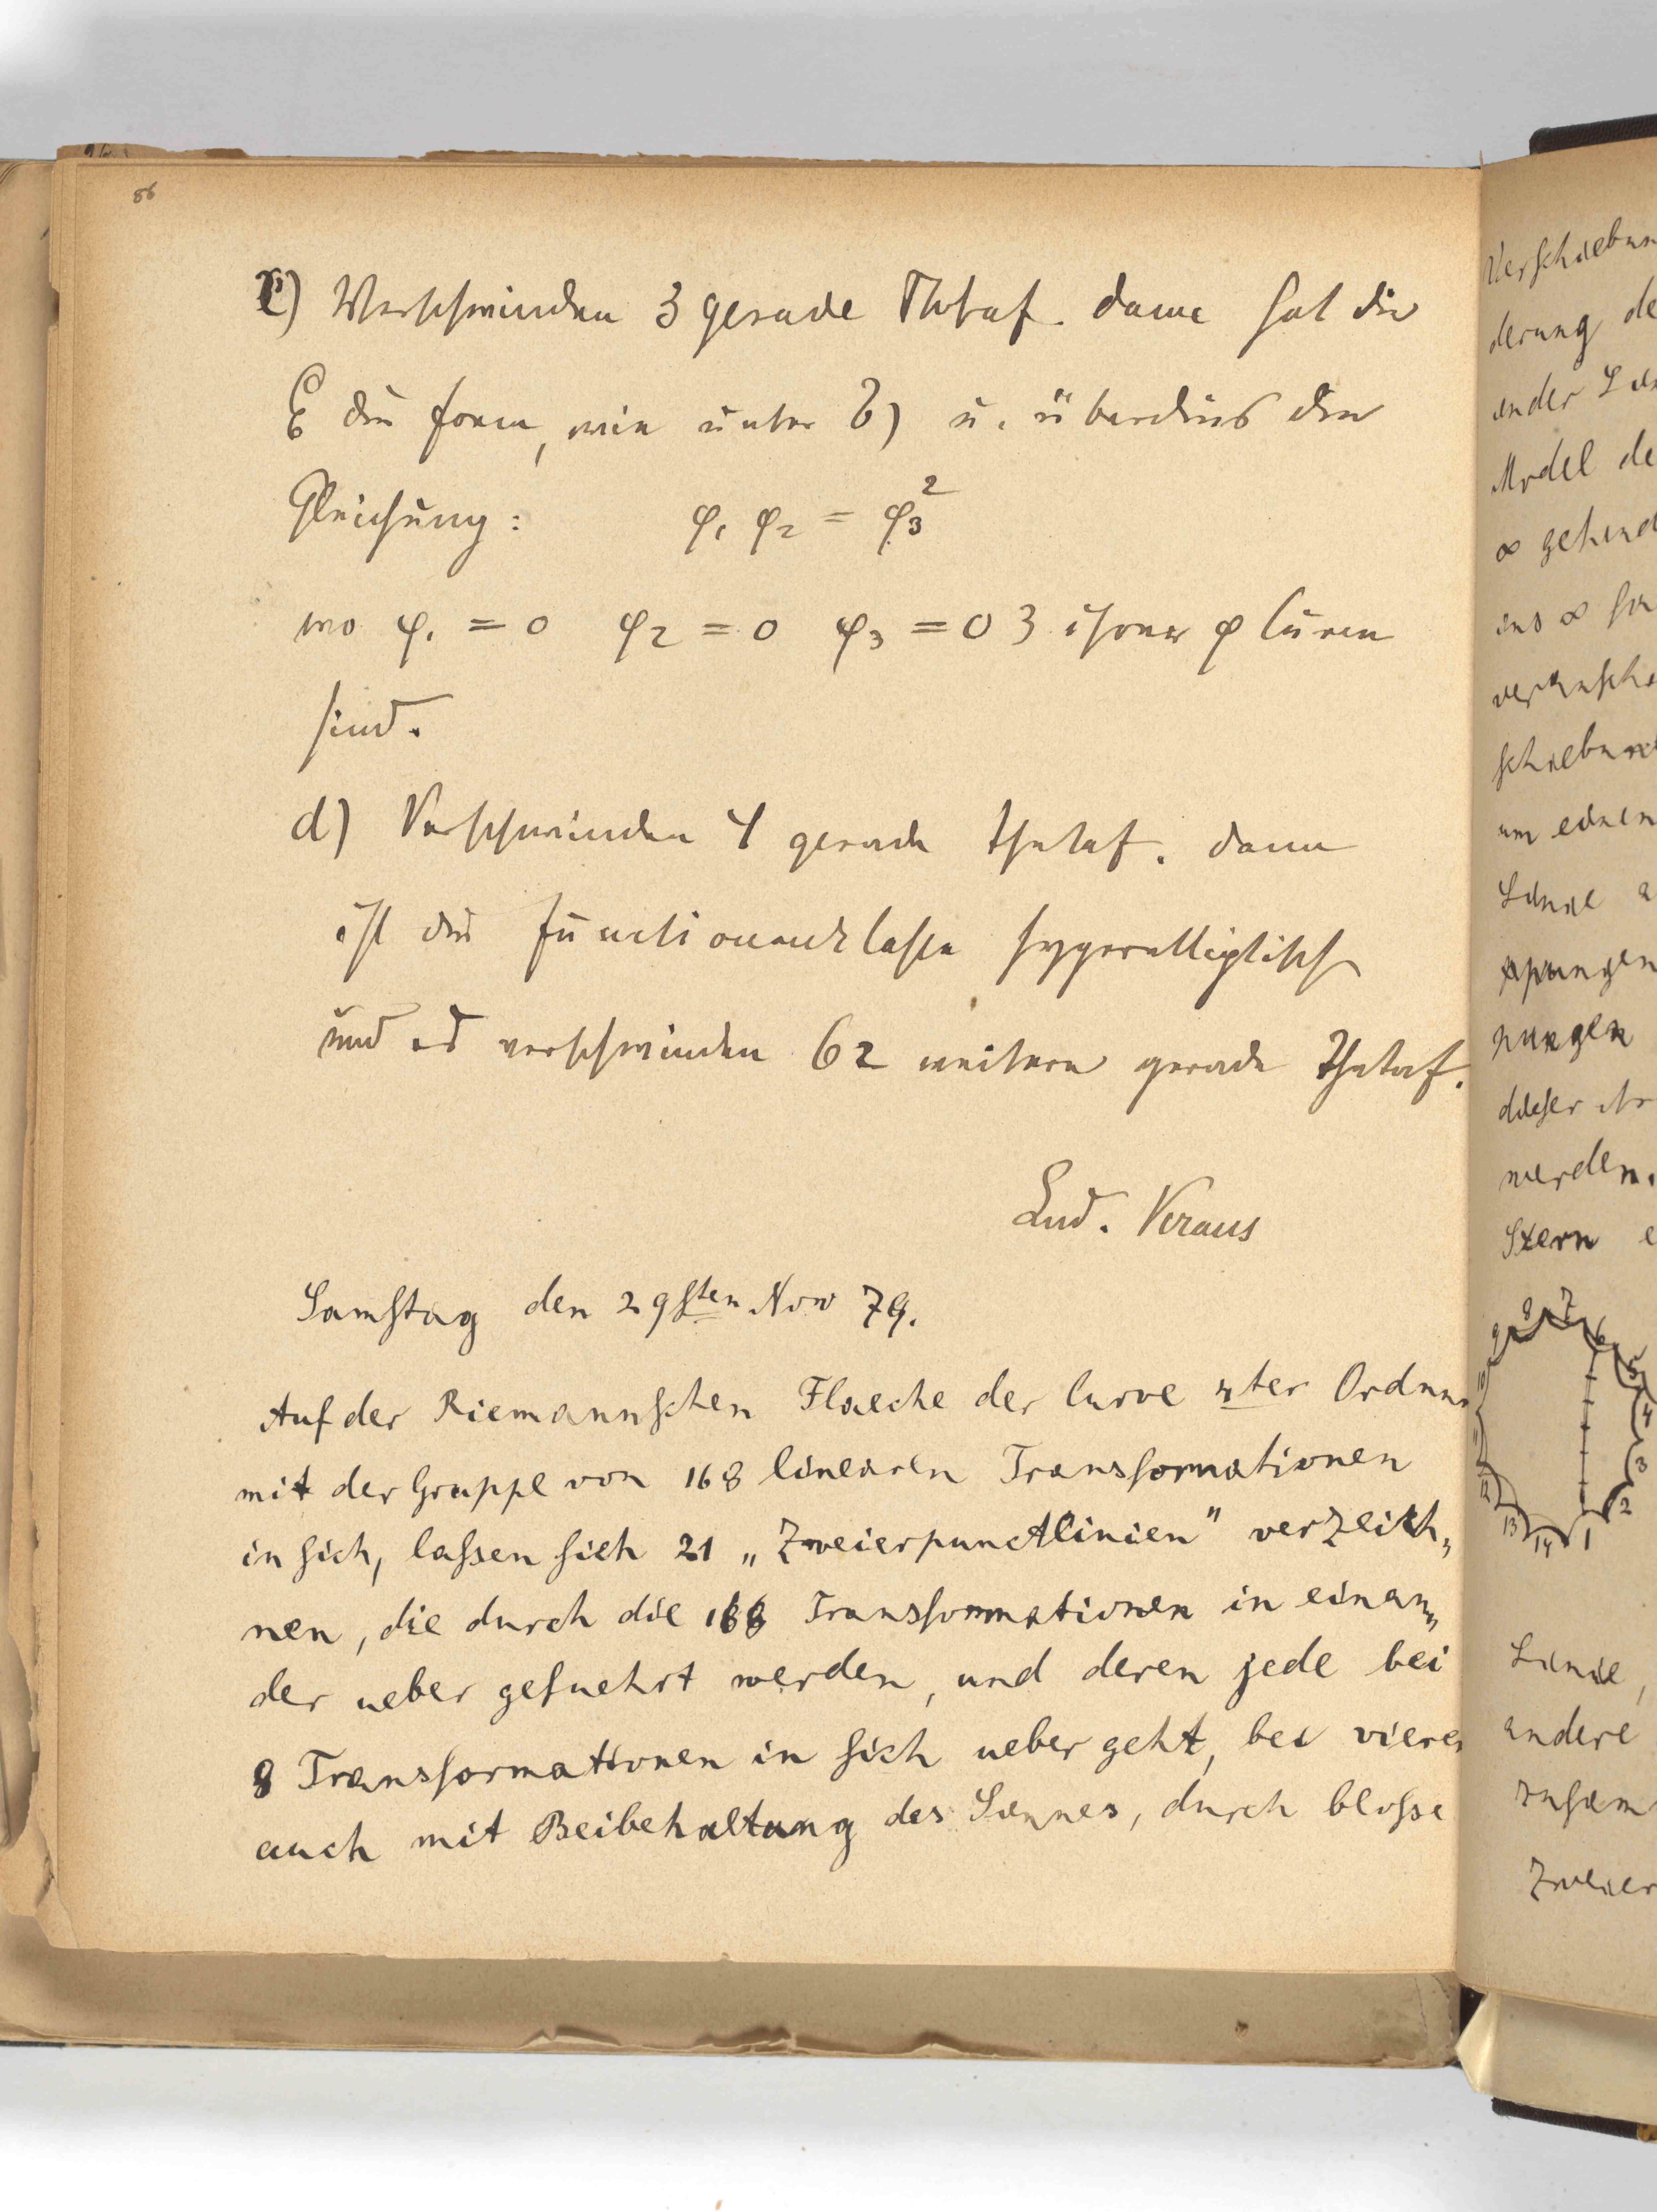 86
c) Verschwinden 3 gerade Thetaf. dann hat die
C6 die Form, wie unter b) u. überdies die
Gleichung: φ1 φ2 = φ3²
wo φ1 = 0 φ2 = 0 φ3 = 0 3 ihrer φ Curven
sind.
d) Verschwinden 4 gerade Thetaf. dann
ist die Functionenklasse hyperelliptisch
und es verschwinden 62 weitere gerade Thetaf.
Lud. Kraus
Samstag den 29sten Nov 79.
Auf der Riemannschen Flaeche der Curve 4ter Ordnung
mit der Gruppe von 168 linearen Transformationen
in sich, lassen sich 21 „Zweierpunctlinien" verzeich„
nen, die durch die 168 Transformationen in einan„
der ueber gefuehrt werden, und deren jede bei
8 Transformationen in sich ueber geht, bei vieren
auch mit Beibehaltung des Sinnes, durch blosse
derung
Model
∞
um einen
Linie
dieser
werden.
Stern
9 8 7 6 5 4 3 2 1 14 13 12
Linie,
andere
Zweier